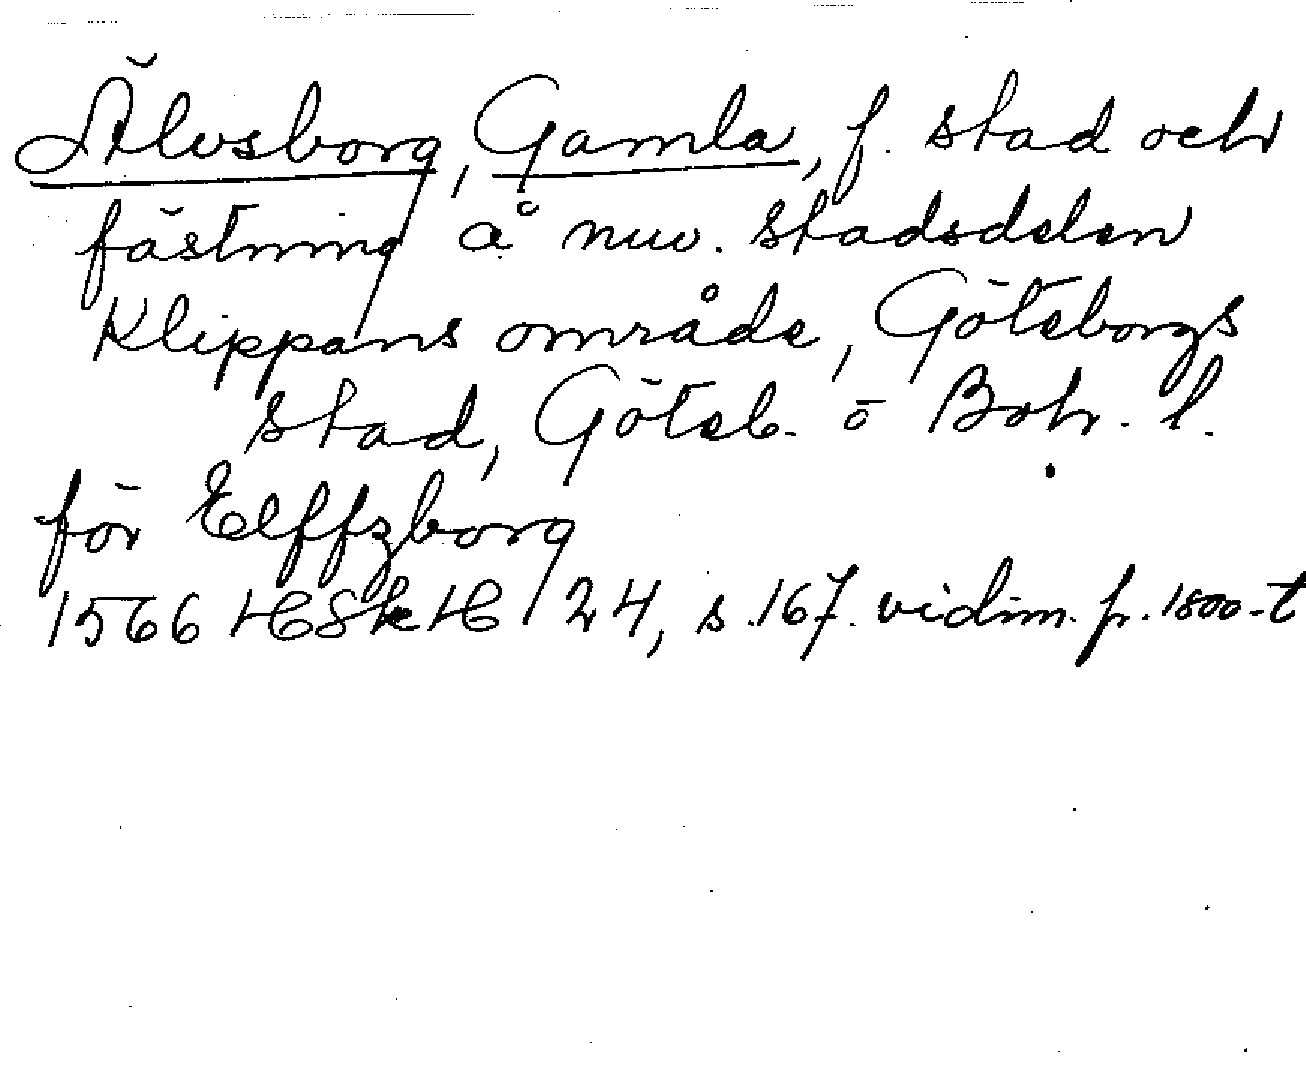 Älvsborg, Gamla, f. stad och
fästning å nuv. stadsdelen
Klippans område, Göteborgs
stad, Göteb. o Boh. l.
för Elffzborg
1566 HSkH 24, s. 167. vidim. fr. 1800-t